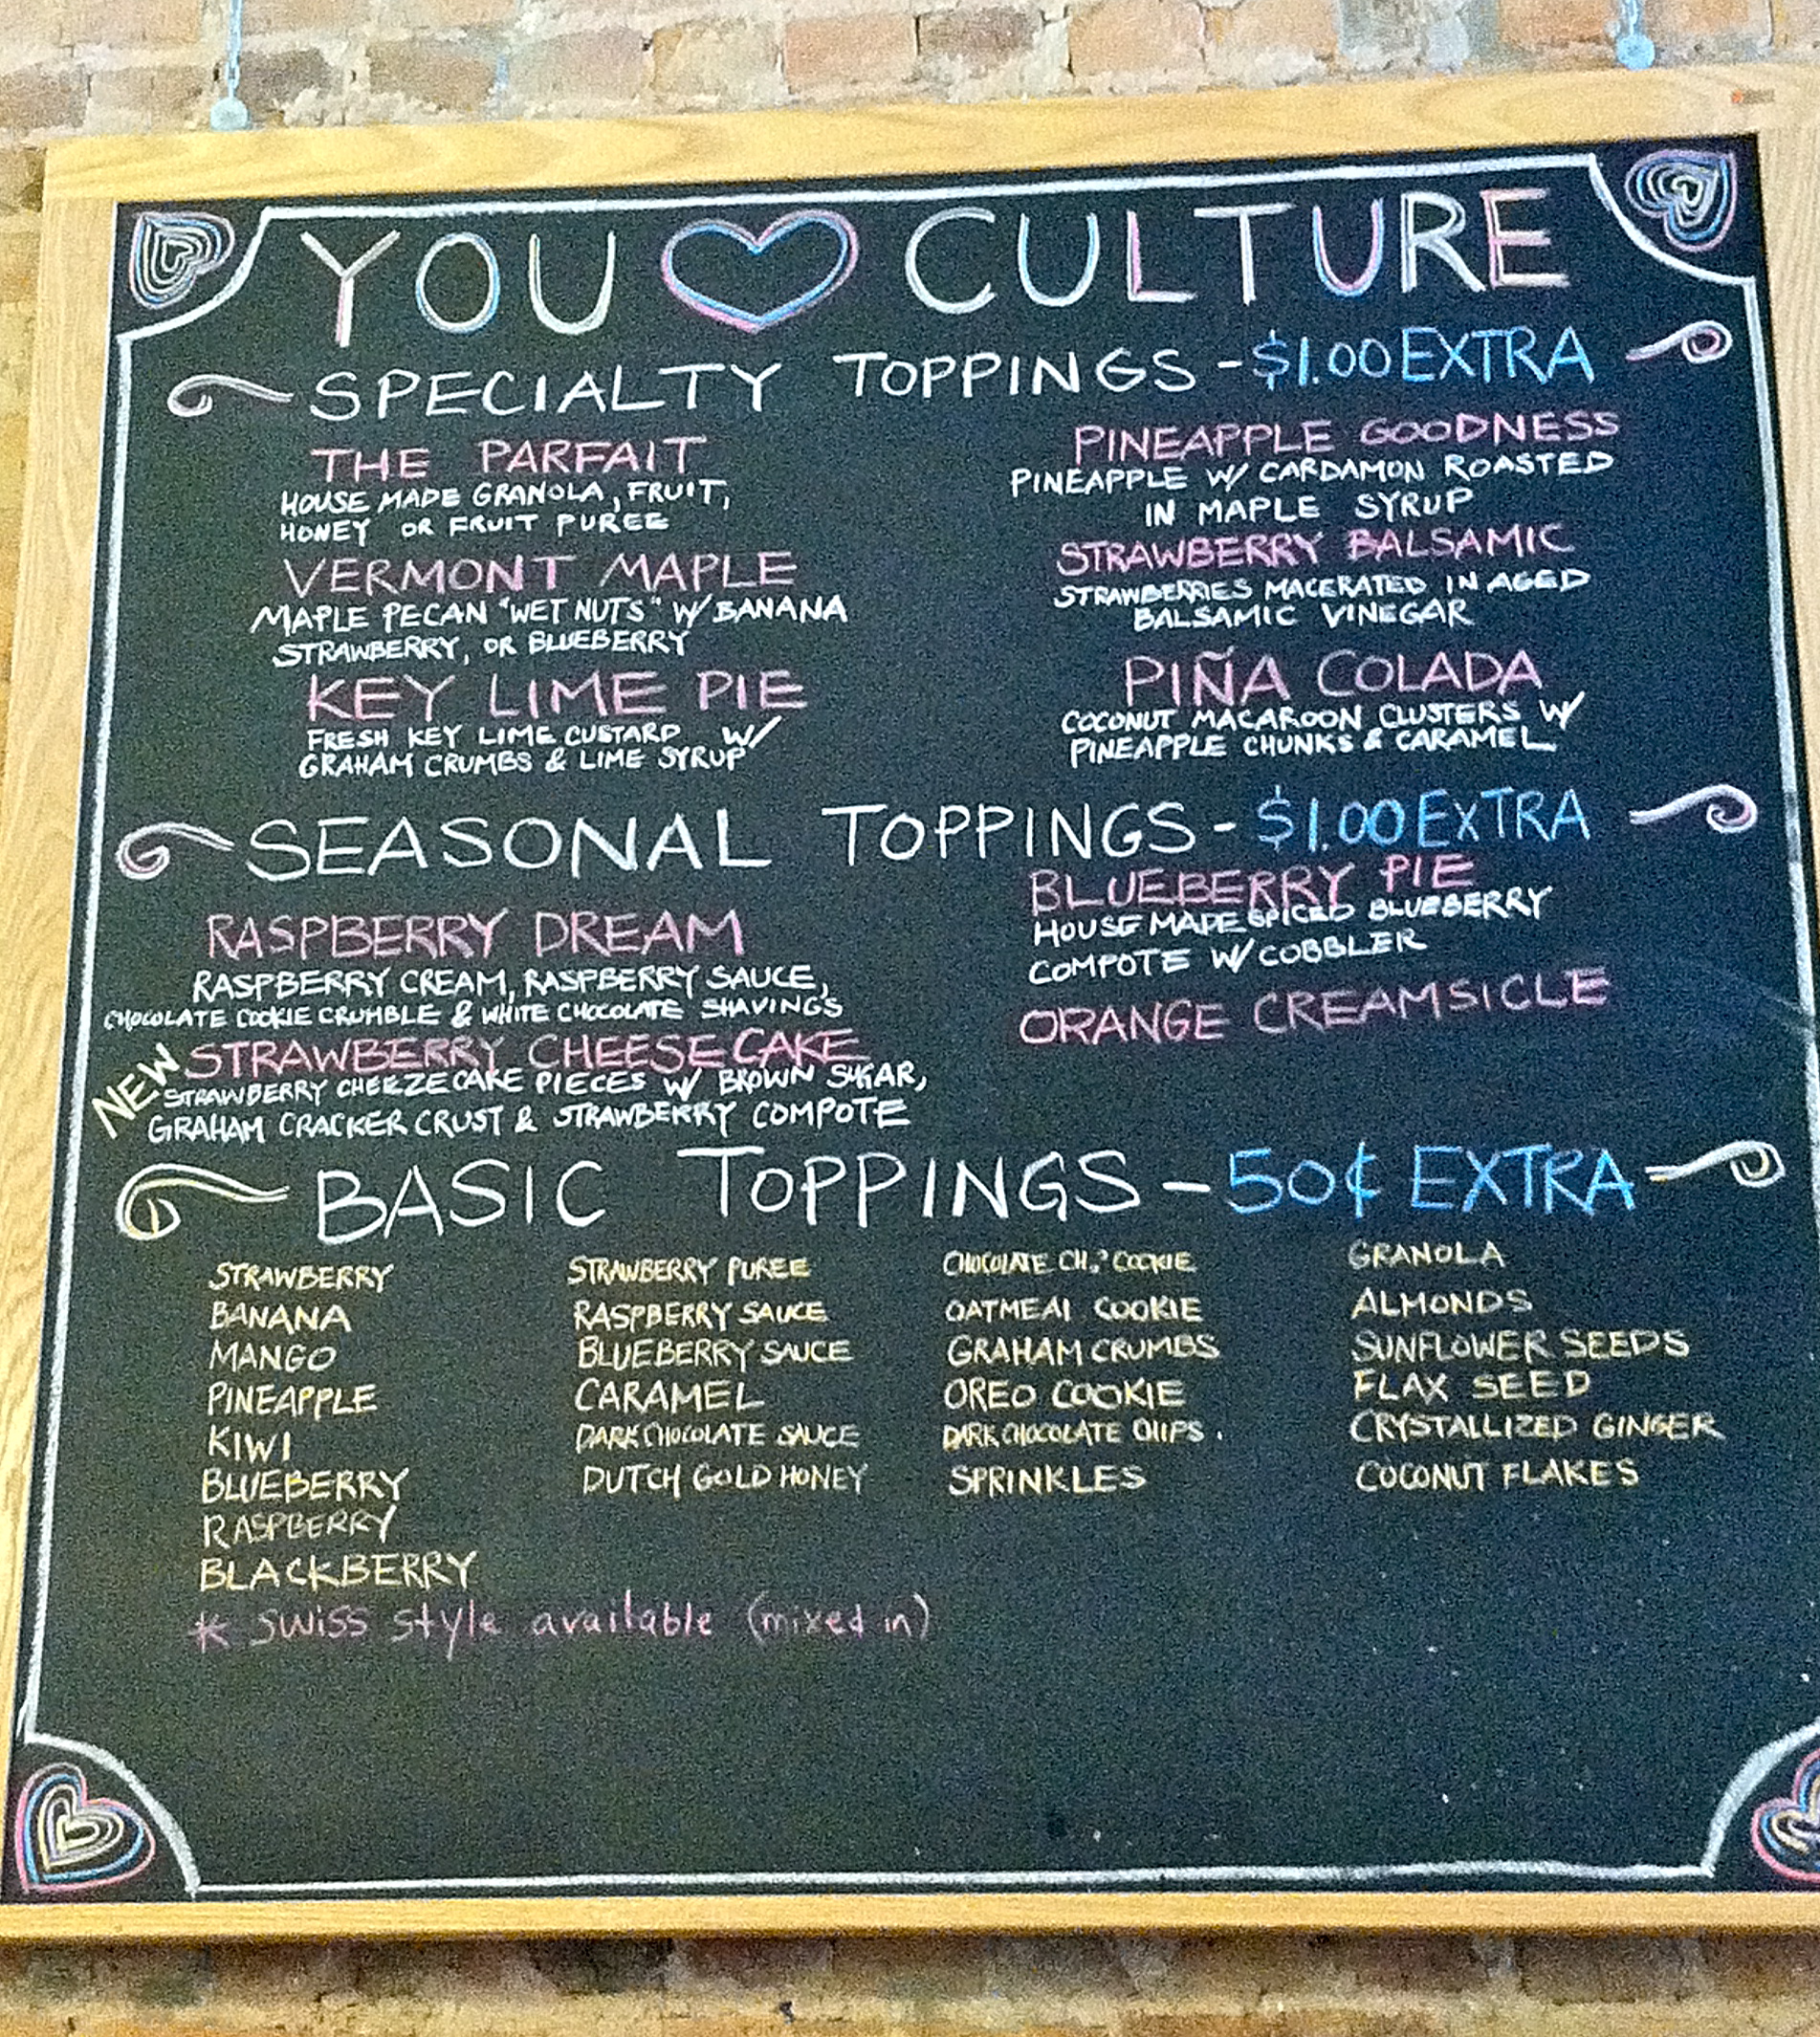 YOU CULTURE
SPECIALTY TOPPINGS - $1.00 EXTRA
THE PARFAIT
HOUSE MADE GRANOLA, FRUIT,
HONEY OR FRUIT PUREE
VERMONT MAPLE
MAPLE PECAN "WET NUTS" W/ BANANA
STRAWBERRY, OR BLUEBERRY
KEY LIME PIE
FRESH KEY LIME CUSTARD W/
GRAHAM CRUMBS & LIME SYRUP
PINEAPPLE GOODNESS
PINEAPPLE W/ CARDAMON ROASTED
IN MAPLE SYRUP
STRAWBERRY BALSAMIC
STRAWBERRIES MACERATED IN AGED
BALSAMIC VINEGAR
PIÑA COLADA
COCONUT MACAROON CLUSTERS W/
PINEAPPLE CHUNKS & CARAMEL
SEASONAL TOPPINGS - $1.00 EXTRA
RASPBERRY DREAM
RASPBERRY CREAM, RASPBERRY SAUCE,
CHOCOLATE COOKIE CRUMBLE & WHITE CHOCOLATE SHAVINGS
NEW STRAWBERRY CHEESECAKE
STRAWBERRY CHEEZECAKE PIECES W/ BROWN SUGAR,
GRAHAM CRACKER CRUST & STRAWBERRY COMPOTE
BLUEBERRY PIE
HOUSE MADE SPICED BLUEBERRY
COMPOTE W/ COBBLER
ORANGE CREAMSICLE
BASIC TOPPINGS - 50¢ EXTRA
STRAWBERRY
BANANA
MANGO
PINEAPPLE
KIWI
BLUEBERRY
RASPBERRY
BLACKBERRY
STRAWBERRY PUREE
RASPBERRY SAUCE
BLUEBERRY SAUCE
CARAMEL
DARK CHOCOLATE SAUCE
DUTCH GOLD HONEY
CHOCOLATE COOKIE
OATMEAL COOKIE
GRAHAM CRUMBS
OREO COOKIE
DARK CHOCOLATE CHIPS.
SPRINKLES
GRANOLA
ALMONDS
SUNFLOWER SEEDS
FLAX SEED
CRYSTALLIZED GINGER
COCONUT FLAKES
* swiss style available (mixed in)